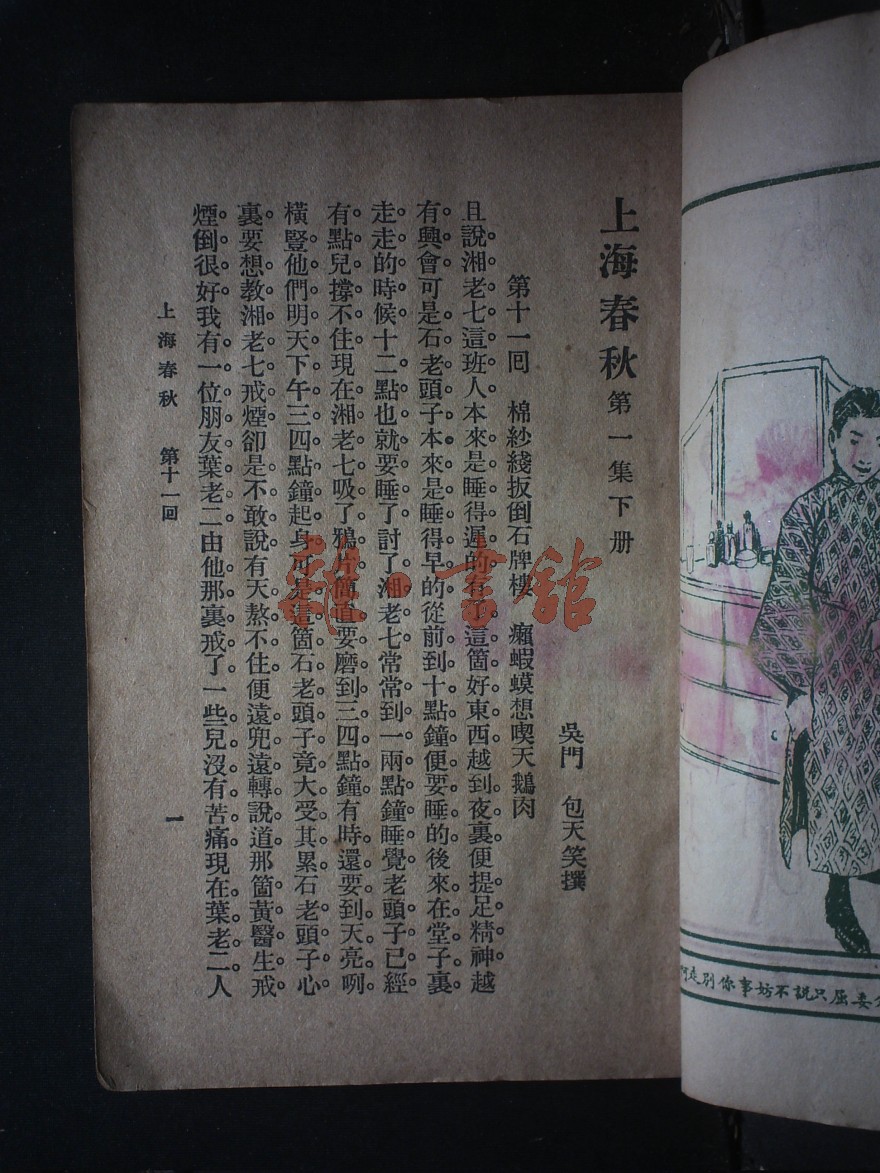 上海春秋 第一集下册
吳門 包天笑撰
第十一回 棉紗綫扳倒石牌樓 癩蝦蟆想喫天鵝肉
且說湘老七這班人本來是睡得遲的有 這箇好東西越到夜裏便提足精神越
有興會可是石老頭子本來是睡得早的從前到十點鐘便要睡的後來在堂子裏
走走的時候十二點也就要睡了討了湘老七常常到一兩點鐘睡覺老頭子已經
有點兒撐不住現在湘老七吸了鴉片簡直要磨到三四點鐘有時還要到天亮咧
橫豎他們明天下午三四點鐘起身可是這箇石老頭子竟大受其累石老頭子心
裏要想教湘老七戒煙卻是不敢說有天熬不住便遠兜遠轉說道那箇黃醫生戒
煙倒很好我有一位朋友葉老二由他那裏戒了一些兒沒有苦痛現在葉老二人
上海春秋 第十一回 一
委屈只說不妨事你別走
雜·書館